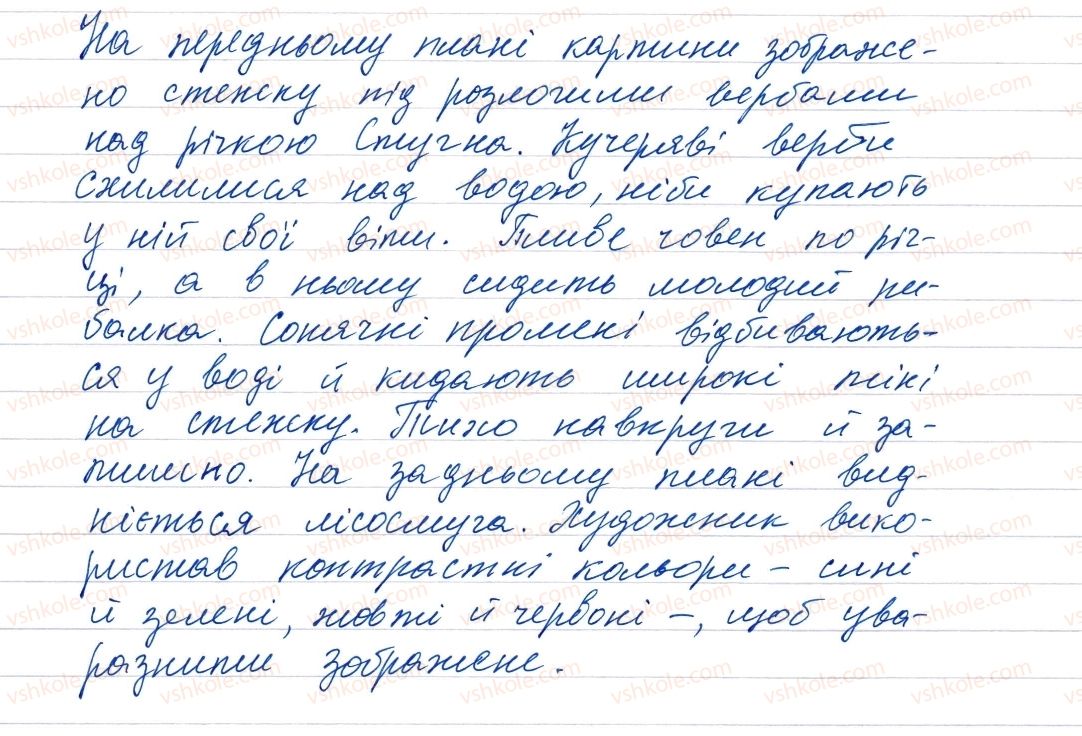 На передньому плані картини зображе-
но стежку під розлогими вербами
над річкою Стугна. Кучеряві верби
схилилися над водою, ніби купають
у ній свої віти. Пливе човен по річ-
ці, а в ньому сидить молодий ри-
балка. Сонячні промені відбивають-
ся у воді й кидають широкі тіні
на стежку. Тихо навкруги й за-
тишно. На задньому плані вид-
ніється лісосмуга. Художник вико-
ристав контрастні кольори – сині
й зелені, жовті й червоні –, щоб ува-
разнити зображене.
vshkole.com